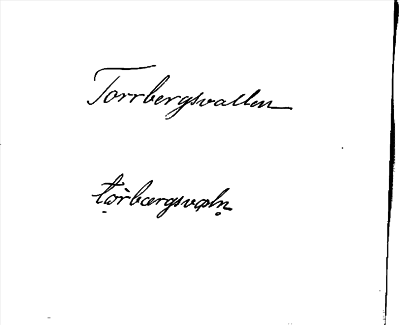 Torrbergsvallen
tòrbærgsvaln